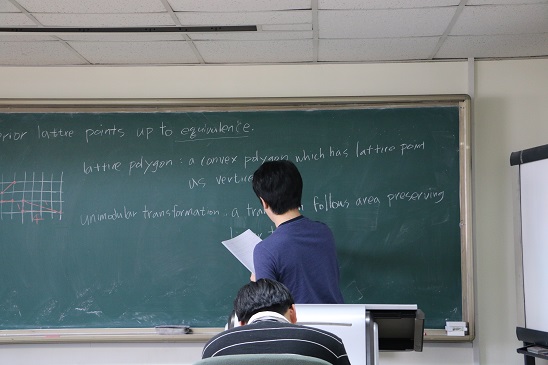 erior lattice points up to equivalence.
lattice polygon : a convex polygon which has lattice point
as vertice
unimodular transformation : a tran follows area preserving